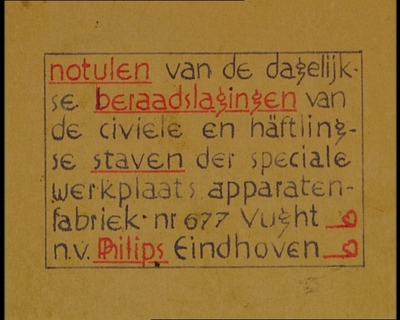 notulen van de dagelijk-
se beraadslagingen van
de civiele en häftling-
se staven der speciale
werkplaats apparaten-
fabriek· nr 677 Vught
n.v. Philips Eindhoven